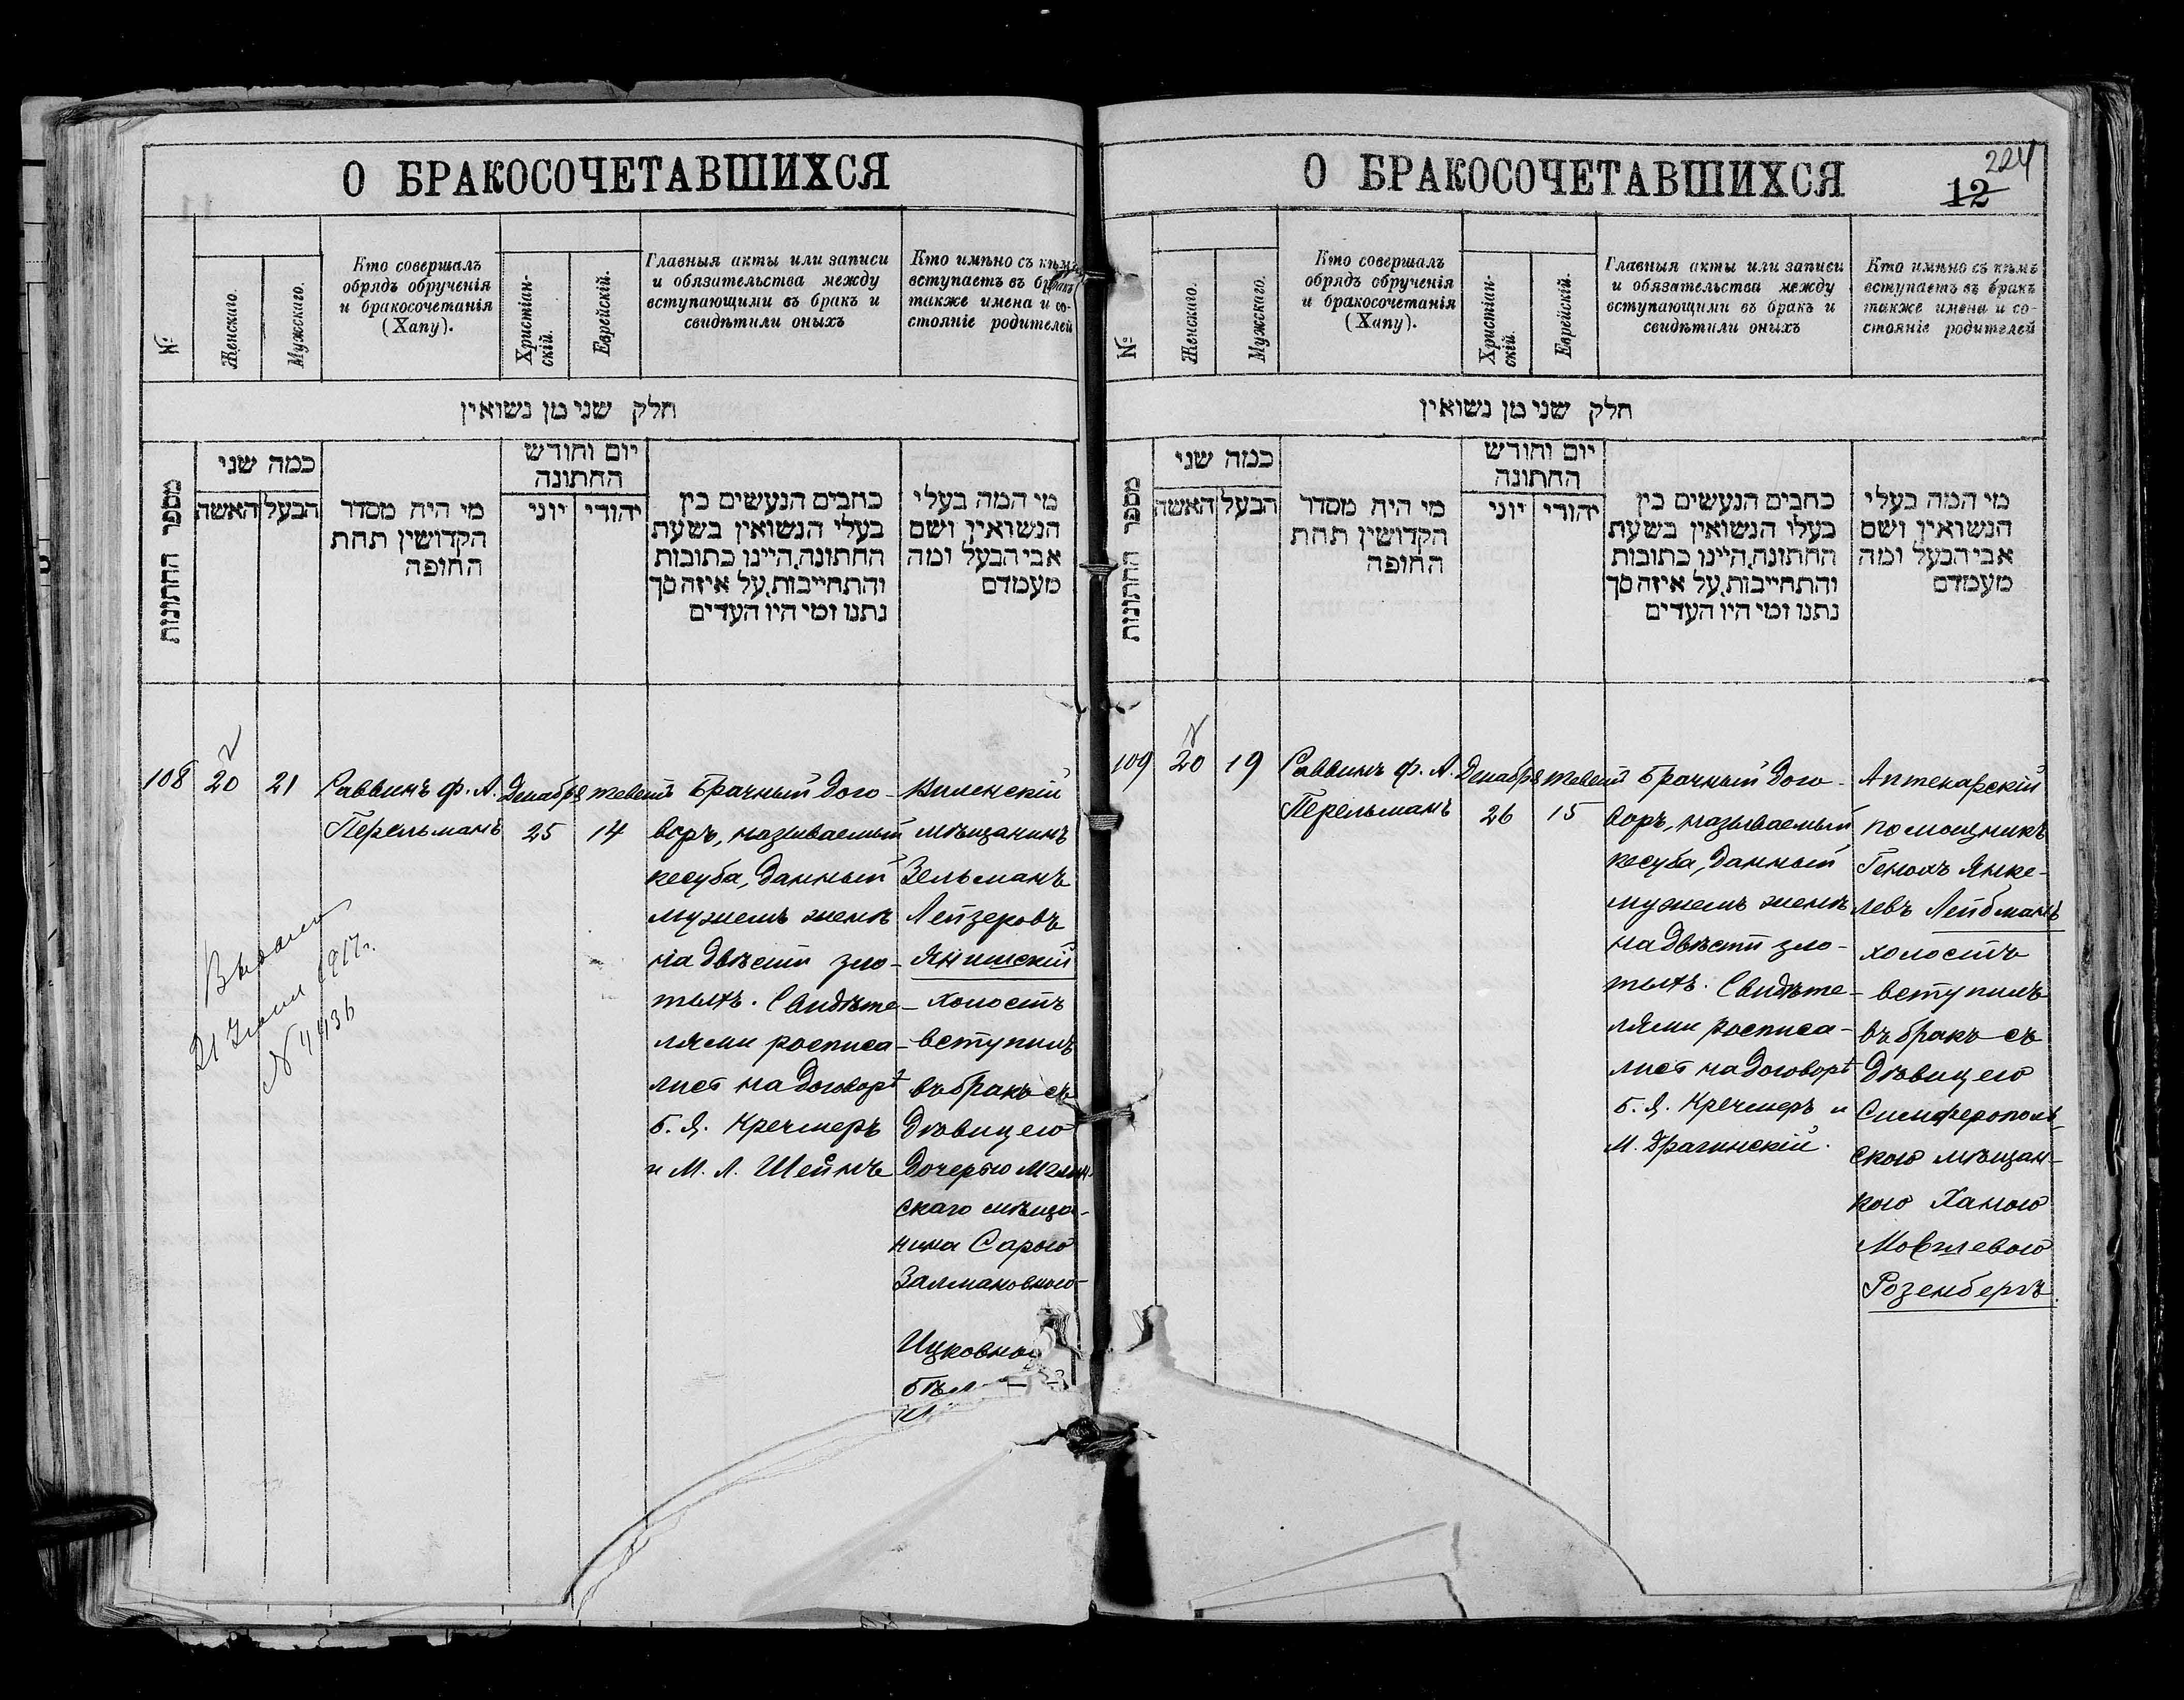 О БРАКОСОЧЕТАВШИХСЯ
№
Женскаго.
Мужскаго.
Кто совершалъ
обрядъ обрученія
и бракосочетанія
(Хапу).
Христіан-
скій.
Еврейскій.
Главныя акты или записи
и обязательства между
вступающими въ бракъ и
свидѣтили оныхъ
Кто имѣно съ кѣмъ
вступаетъ въ бракъ
также имена и со-
стояніе родителей
חלק שני מן נשואין
מספר החתונות
כמה שני
הבעל
האשה
מי היה מסדר
הקדושין תחת
החופה
יום וחודש
החתונה
יהודי
יוני
כתבים הנעשים בין
בעלי הנשואין בשעת
החתונה, היינו כתובות
והתחייבות, על איזה סך
נתנו ומי היו העדים
מי המה בעלי
הנשואין ושם
אבי הבעל ומה
מעמדם
108
20
21
Раввинъ Ф. А.
Перельманъ
Декабря
25
тевейтъ
14
Брачный дого-
воръ, называемый
кесуба, данный
мужемъ женѣ
на двѣсти зло-
тыхъ. Свидѣте-
лями росписа-
лись на договорѣ
Б. Я. Кречмеръ
и М. Л. Шейнъ
Виленскій
мѣщанинъ
Зельманъ
Лейзеровъ
Янишскій
холостъ
вступилъ
въ бракъ съ
дѣвицею
дочерью Мглин-
скаго мѣща-
нина Сарою
Залмановною-
Ицковною
21 Іюня 1917 г.
О БРАКОСОЧЕТАВШИХСЯ
224
12
№
Женскаго.
Мужскаго.
Кто совершалъ
обрядъ обрученія
и бракосочетанія
(Хапу).
Христіан-
скій.
Еврейскій.
Главныя акты или записи
и обязательства между
вступающими въ бракъ и
свидѣтили оныхъ
Кто имѣно съ кѣмъ
вступаетъ въ бракъ
также имена и со-
стояніе родителей
חלק שני מן נשואין
מספר החתונות
כמה שני
הבעל
האשה
מי היה מסדר
הקדושין תחת
החופה
יום וחודש
החתונה
יהודי
יוני
כתבים הנעשים בין
בעלי הנשואין בשעת
החתונה, היינו כתובות
והתחייבות, על איזה סך
נתנו ומי היו העדים
מי המה בעלי
הנשואין ושם
אבי הבעל ומה
מעמדם
109
20
19
Раввинъ Ф. А.
Перельманъ
Декабря
26
тевейтъ
15
Брачный дого-
воръ, называемый
кесуба, данный
мужемъ женѣ
на двѣсти зло-
тыхъ. Свидѣте-
лями росписа-
лись на договорѣ
Б. Я. Кречмеръ и
М. Драгинскій.
Аптекарскій
помощникъ
Генохъ Янке-
левъ Лейбманъ
холостъ
вступилъ
въ бракъ съ
дѣвицею
Симферополь-
скою мѣщан-
кою Ханою
Мовшевою
Розенбергъ.